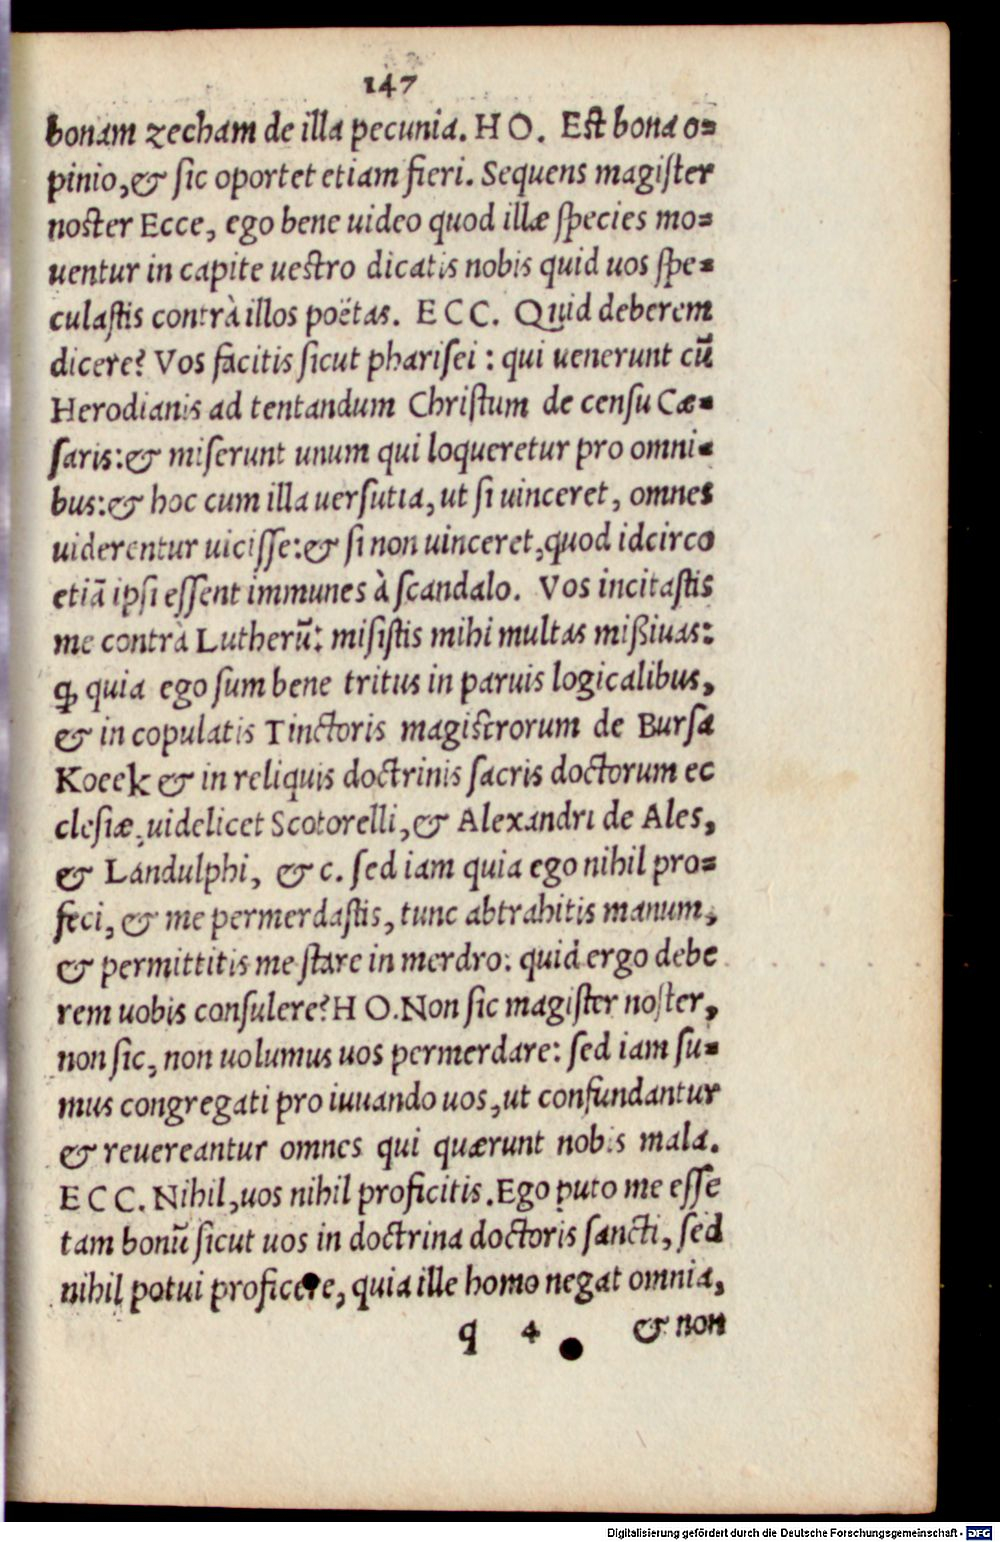 147
bonam zecham de illa pecunia. H O. Est bona o=
pinio,& sic oportet etiam fieri. Sequens magister
noster Ecce, ego bene uideo quod illæ species mo=
uentur in capite uestro dicatis nobis quid uos spe=
culastis contrà illos poëtas. E C C. Quid deberem
dicere? Vos facitis sicut pharisei : qui uenerunt cū
Herodianis ad tentandum Christum de censu Cæ=
saris:& miserunt unum qui loqueretur pro omni=
bus:& hoc cum illa uersutia, ut si uinceret, omnes
uiderentur uicisse:& si non uinceret,quod idcirco
etiā ipsi essent immunes à scandalo. Vos incitastis
me contrà Lutherū: misistis mihi multas mißiuas:
ꝙ quia ego sum bene tritus in paruis logicalibus,
& in copulatis Tinctoris magistrorum de Bursa
Koeek & in reliquis doctrinis sacris doctorum ec
clesiæ, uidelicet Scotorelli,& Alexandri de Ales,
& Landulphi, & c. sed iam quia ego nihil pro=
feci, & me permerdastis, tunc abtrahitis manum,
& permittitis me stare in merdro: quid ergo debe
rem uobis consulere? H O. Non sic magister noster,
non sic, non uolumus uos permerdare: sed iam su=
mus congregati pro iuuando uos,ut confundantur
& reuereantur omnes qui quærunt nobis mala.
E C C. Nihil,uos nihil proficitis. Ego puto me esse
tam bonū sicut uos in doctrina doctoris sancti, sed
nihil potui proficere, quia ille homo negat omnia,
q 4 & non
Digitalisierung gefördert durch die Deutsche Forschungsgemeinschaft - DFG